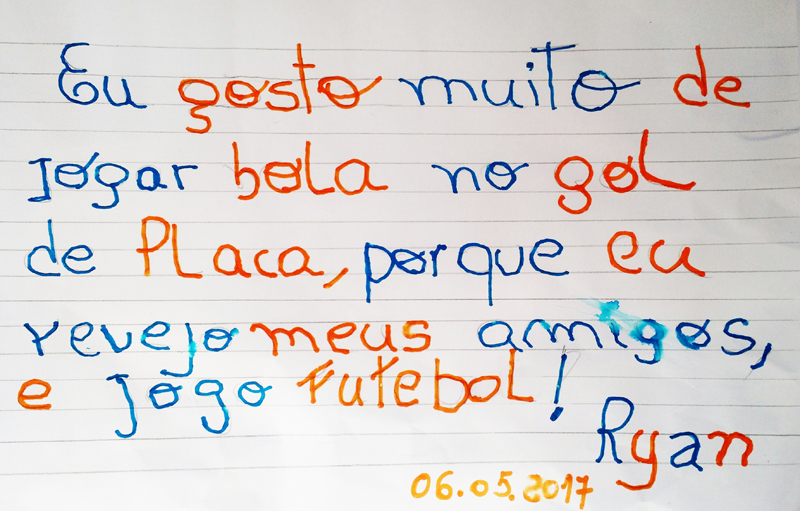 Eu gosto muito de
jogar bola no gol
de Placa, porque eu
revejo meus amigos,
e jogo Futebol!
Ryan
06.05.2017